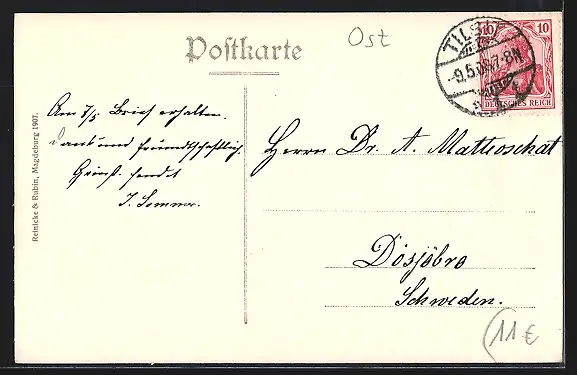 Postkarte
Ost
10 10
TILSIT
-9.5.08.7-8N
DEUTSCHES REICH
Am 7/5 Brief erhalten.
Dank und freundschaftlich.
Gruß sendet
J. Sommer.
Herrn Dr. A. Mattioschat
Dösjöbro
Schweden.
Reinicke & Rubin, Magdeburg 1907.
11€